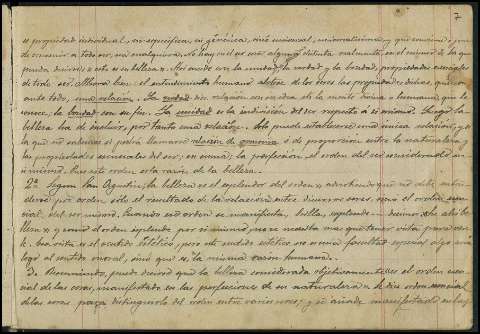 7
es propiedad individual, ni específica, ni genérica, sino universal, y que conviene, y puede
convenir a todo ser, sea cualquiera. No hay en el ser cosa alguna distinta realmente, en el mismo de la que
pueda decirse: esto es su belleza. Así sucede con la unidad, la verdad y la bondad, propiedades esenciales
de todo ser. Ahora bien: el entendimiento humano de los seres las propiedades dichas,
ante todo, una relación. La verdad dice relación con la mente divina o humana que le
conoce; la bondad con su fin. La unidad es la indivisión del ser respecto a sí mismo. Luego la
belleza ha de incluir, por tanto una relación. Sólo puede establecerse una única relación, y es
la que no podrá llamarse razon de armonía ó de proporcion entre la naturaleza y
las propiedades esenciales del ser; en suma; la perfeccion, el orden del ser considerado en
si mismo. Pues este orden es la razón de la belleza.
2ª Segun San Agustin, la belleza es el esplendor del orden; advirtiendo que no debe enten
derse por orden sólo el resultado de la relacion entre diversos seres, sino el orden esen
cial, del ser mismo. Cuando este orden se manifiesta, brilla, esplende decimos ahí be
lleza y como el orden esplende por si mismo, no se necesita mas que tener vista para ver
la. Esa vista es el sentido Estético, pero este sentido estético no es una facultad especial algo aná
logo al sentido moral, sino que es, la misma razon humana.
3. Resumiendo, puede decirse que la belleza considerada objetivamente es el orden esen
cial de las cosas, manifestado en las perfecciones de su naturaleza. Se dice orden esencial
de las cosas, para distinguirlo del orden entre varios seres, y se añade manifestado en las